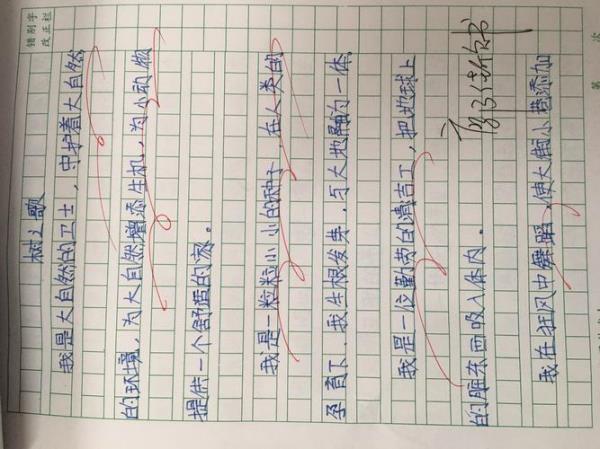 错别字
改正栏
第 次
树之歌
我是大自然的卫士，守护着大自然
的环境，为大自然增添生机，为小动物
提供一个舒适的家。
我是一粒粒小小的种子，在人类的
孕育下，我生根发芽，与大地融为一体。
我是一位勤劳的清洁工，把地球上
的脏东西吸入体内。
我在狂风中舞蹈，使大街小巷添加